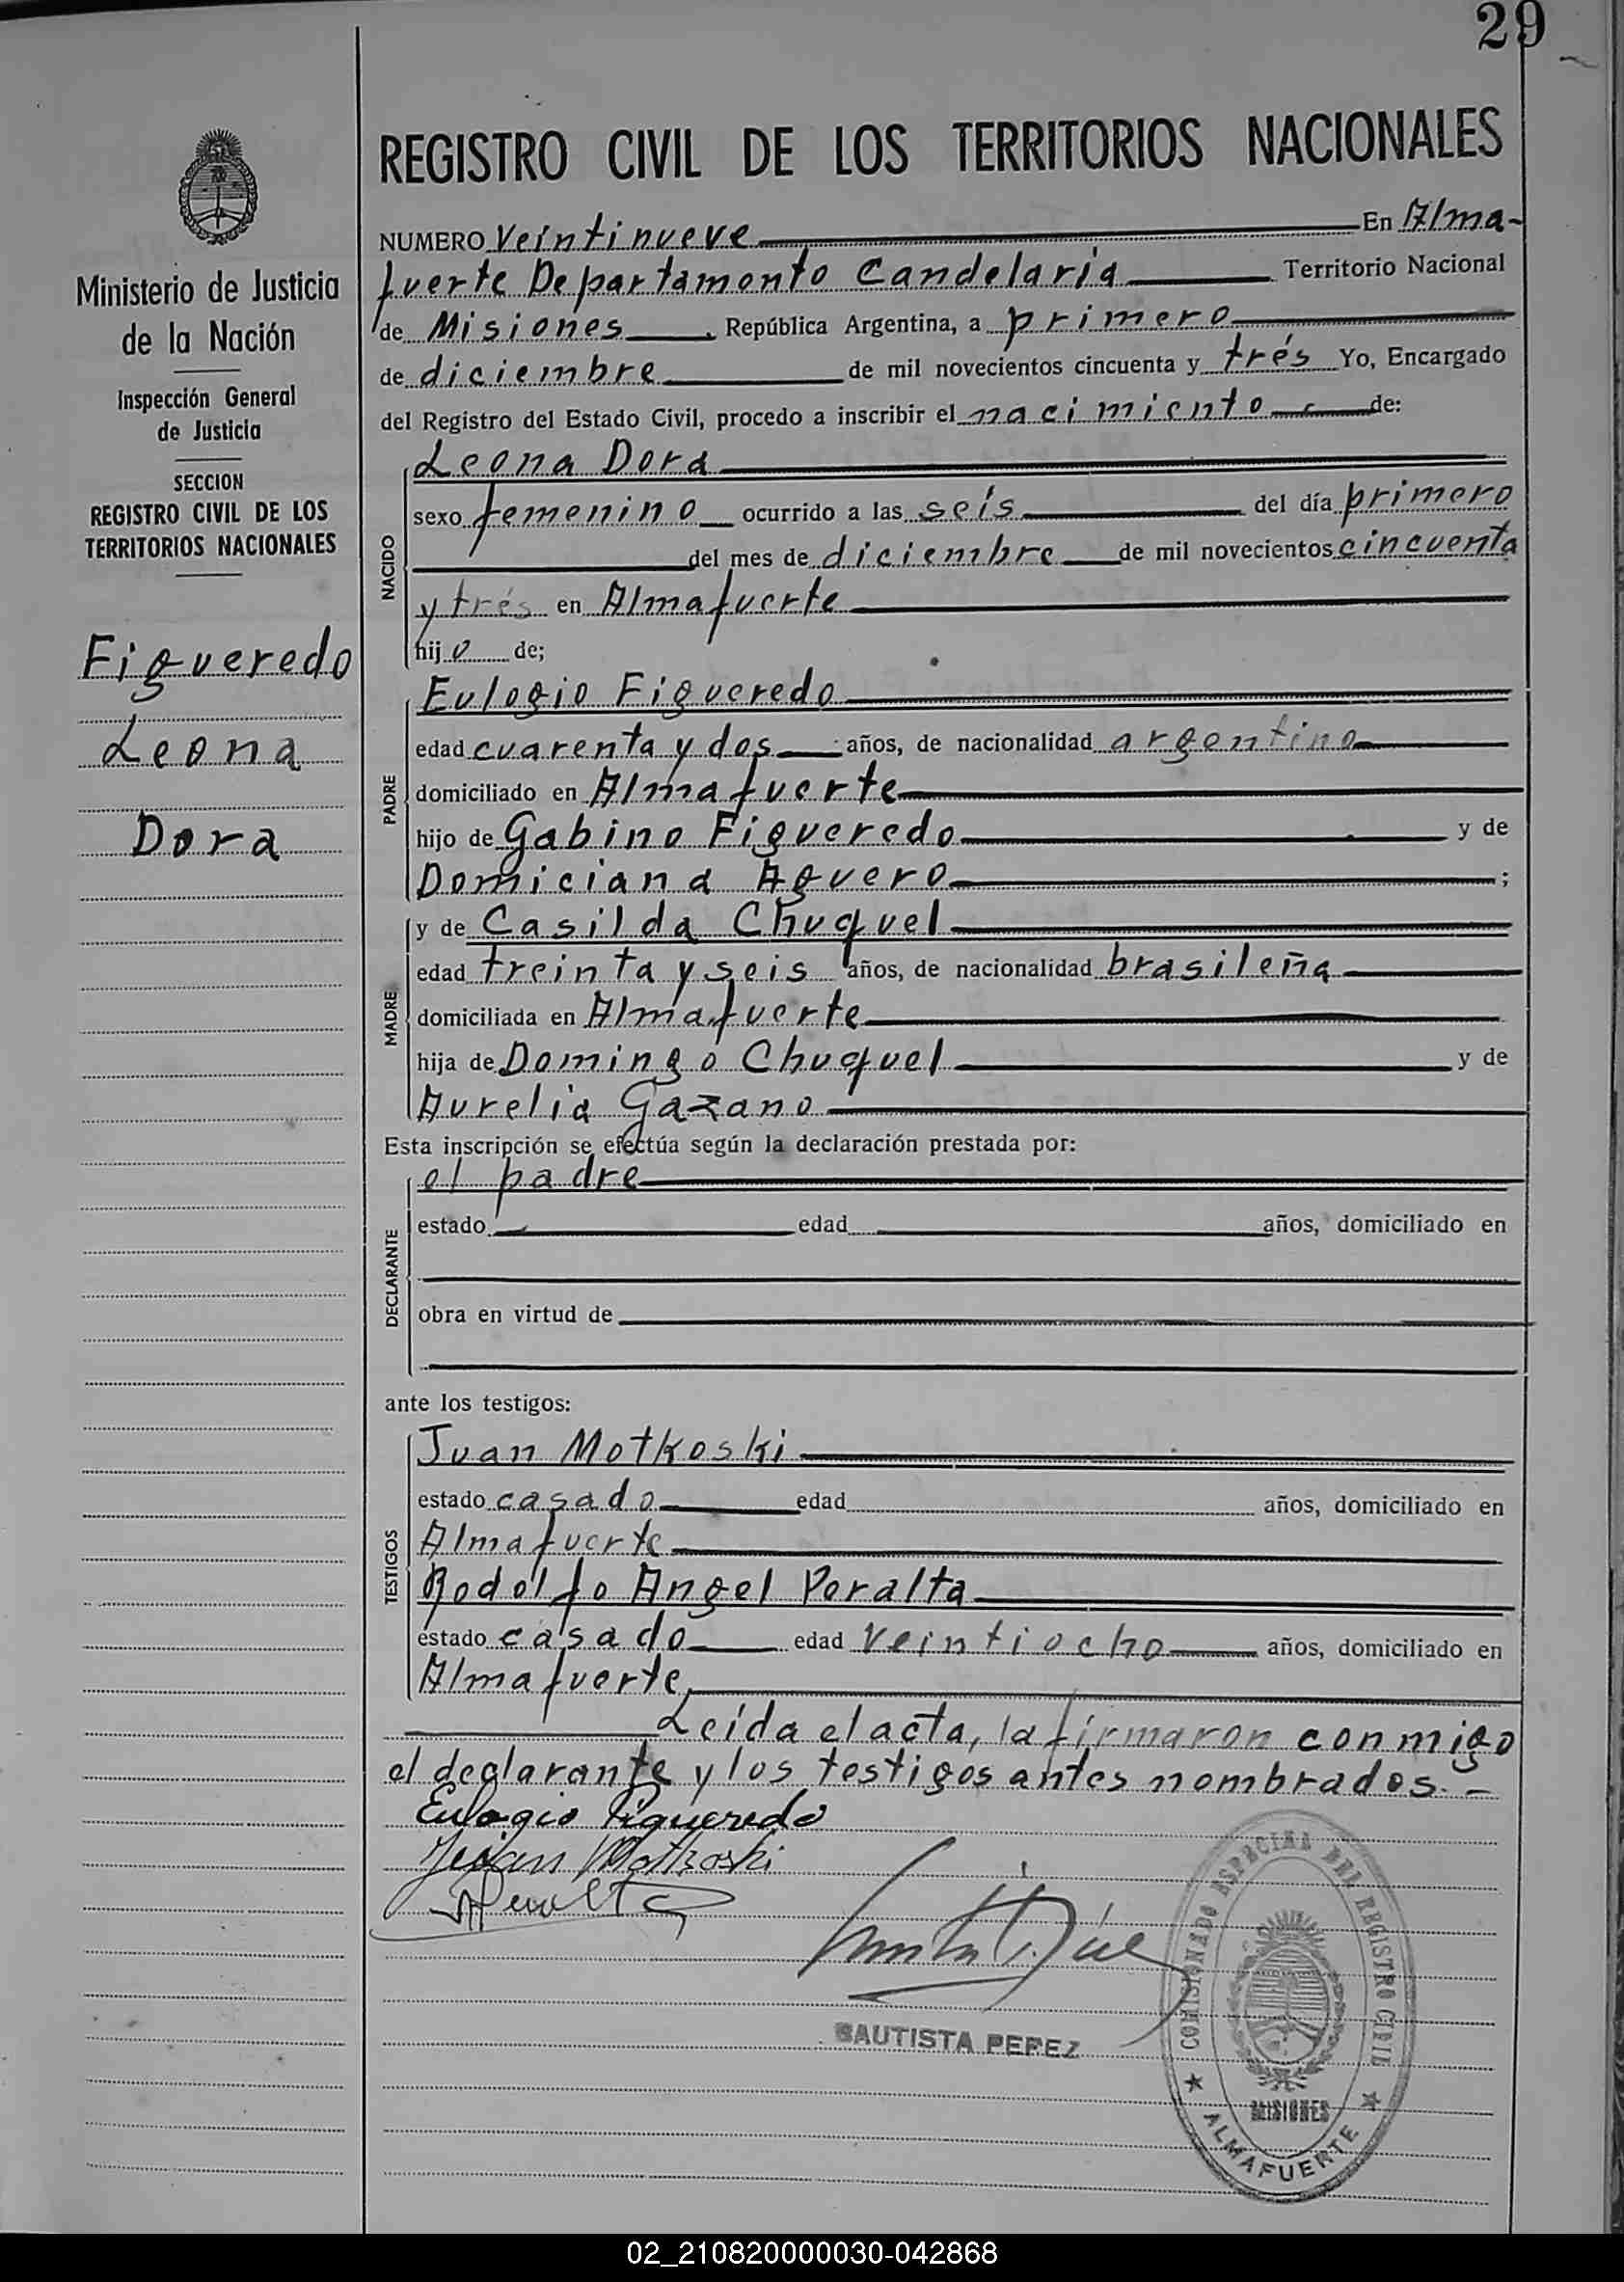 29
REGISTRO CIVIL DE LOS TERRITORIOS NACIONALES
Ministerio de Justicia
de la Nación
Inspección General
de Justicia
SECCION
REGISTRO CIVIL DE LOS
TERRITORIOS NACIONALES
Figueredo
Leona
Dora
NUMERO Veintinueve En Alma-
fuerte Departamento Candelaria Territorio Nacional
de Misiones, República Argentina, a primero
de diciembre de mil novecientos cincuenta y trés Yo, Encargado
del Registro del Estado Civil, procedo a inscribir el nacimiento de:
NACIDO
Leona Dora
sexo femenino ocurrido a las seís del día primero
del mes de diciembre de mil novecientos cincuenta
y trés en Almafuerte
hijo de;
PADRE
Eulogio Figueredo
edad cuarenta y dos años, de nacionalidad argentino
domiciliado en Almafuerte
hijo de Gabino Figueredo y de
Domiciana Aguero ;
MADRE
y de Casilda Chuquel
edad treinta y seis años, de nacionalidad brasileña
domiciliada en Almafuerte
hija de Domingo Chuquel y de
Aurelia Gazano
Esta inscripción se efectúa según la declaración prestada por:
DECLARANTE
el padre
estado edad años, domiciliado en
obra en virtud de
ante los testigos:
TESTIGOS
Juan Motkoski
estado casado edad años, domiciliado en
Almafuerte
Rodolfo Angel Peralta
estado casado edad veintiocho años, domiciliado en
Almafuerte
Leída el acta, la firmaron conmigo
el declarante y los testigos antes nombrados.-
Eulogio Figueredo
Juan Motkoski
Peralta
BAUTISTA PEREZ
COMISIONADO ESPECIAL DEL REGISTRO CIVIL
MISIONES
ALMAFUERTE
02_210820000030-042868